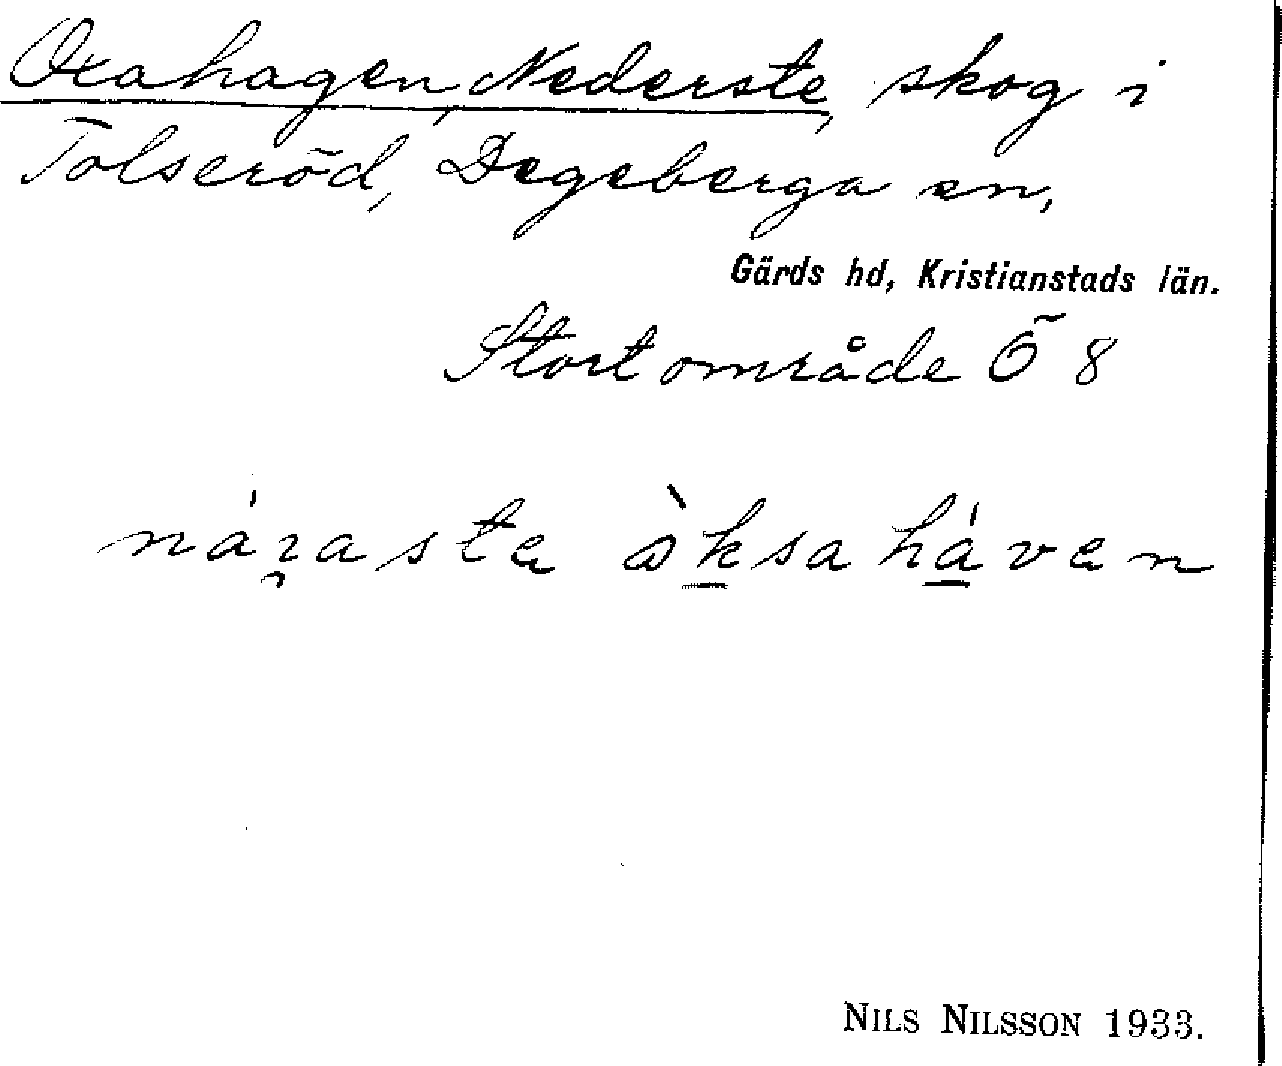 Oxahagen, Nederste, skog i
Tolseröd, Degeberga sn,
Gärds hd, Kristianstads län.
Stort område Ö 8
nárasta òksahávan
NILS NILSSON 1933.